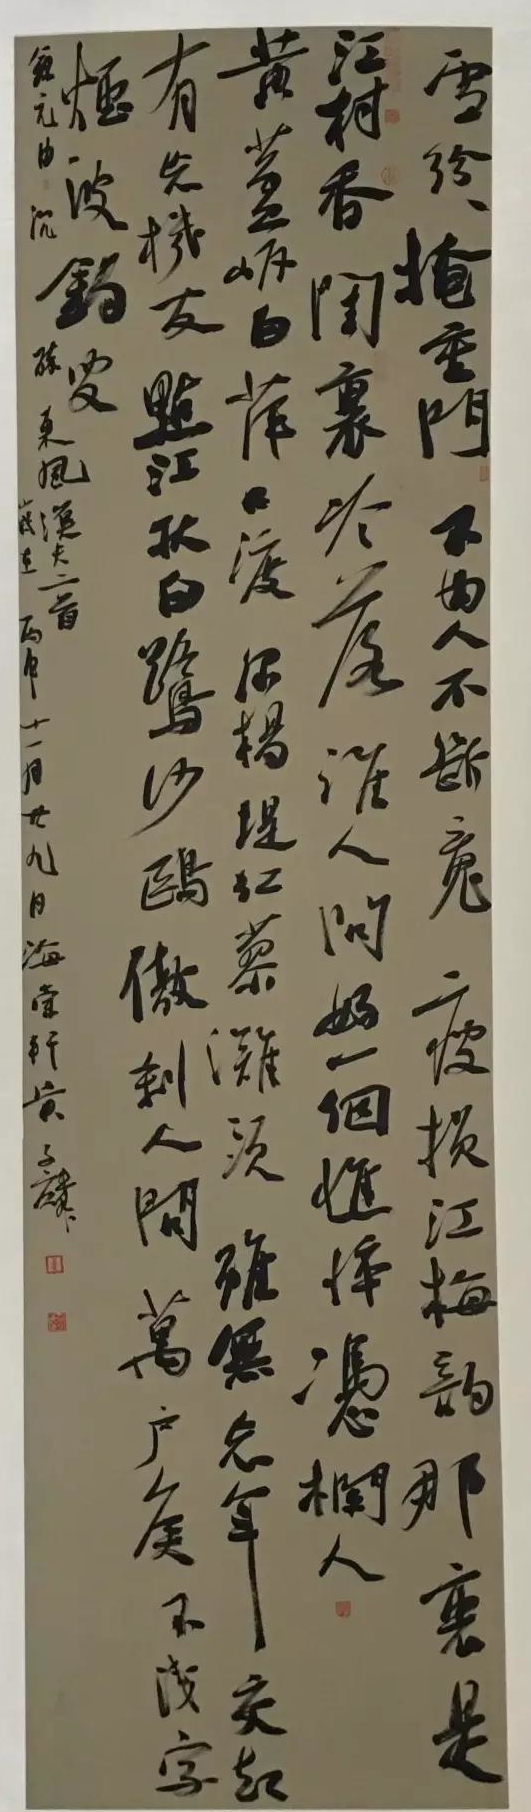 雪紛〻掩重門不由人不斷魂瘦損江梅韵那裏是
江村香閨裏冷落誰人問好一個憔悴憑欄人
黃蘆岸白萍口渡綠楊堤紅蓼灘頭雖無忘年交却
有忘機友點江秋白鷺沙鷗傲剎人間萬戶侯不識字
煙波釣叟
錄元曲沉
醉東風漢夫二首
歲在丙申十一月廿九日海棠軒黃子